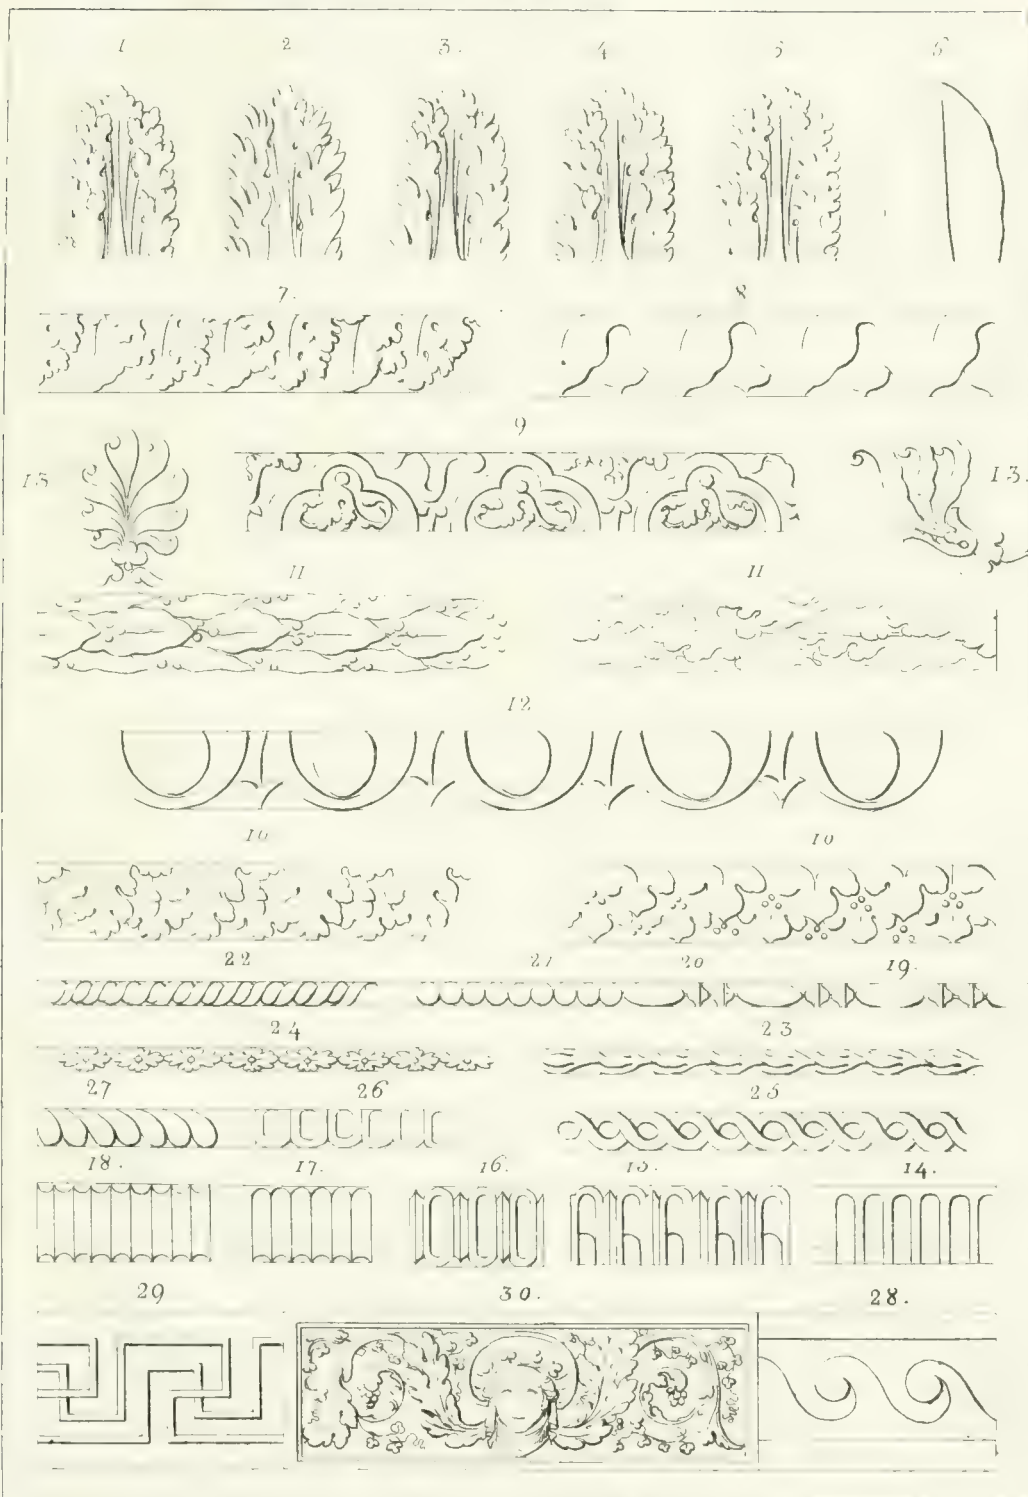 1 2 3. 4 5 5
7. 8
9
13 13.
11 11
12
10 10
22 21 20 19.
24 23
27 26 25
18. 17. 16. 15. 14.
29 30. 28.